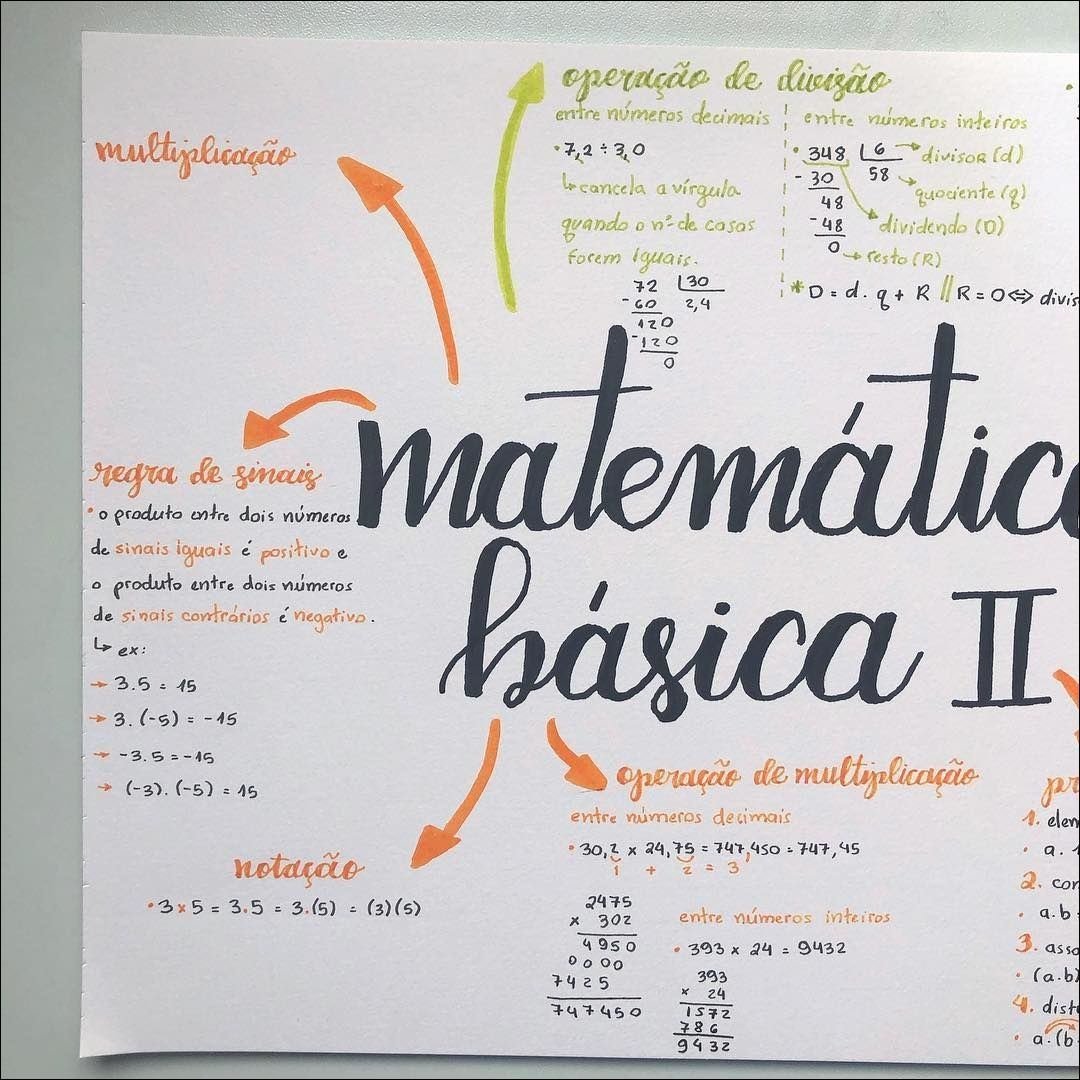 multiplicação
operação de divisão
entre números decimais
• 7,2 ÷ 3,0
↳ cancela a vírgula
quando o nº de casas
forem iguais.
72 | 30
- 60 2,4
120
- 120
0
entre números inteiros
• 348 | 6 → divisor (d)
- 30 58 → quociente (q)
48
- 48 dividendo (D)
0 → resto (R)
* D = d . q + R || R = 0 ⇔ divis
matemátic
básica II
regra de sinais
• o produto entre dois números
de sinais iguais é positivo e
o produto entre dois números
de sinais contrários é negativo.
↳ ex:
→ 3.5 = 15
→ 3. (-5) = -15
→ -3.5 = -15
→ (-3). (-5) = 15
notação
• 3 x 5 = 3.5 = 3.(5) = (3)(5)
operação de multiplicação
entre números decimais
• 30,2 x 24,75 = 747,450 = 747,45
1 + 2 = 3
2475
x 302
4950
0000
7425
747450
entre números inteiros
• 393 x 24 = 9432
393
x 24
1572
786
9432
pr
1. elem
• a. 1
2. com
• a.b
3. asso
• (a.b)
4. dist
• a.(b